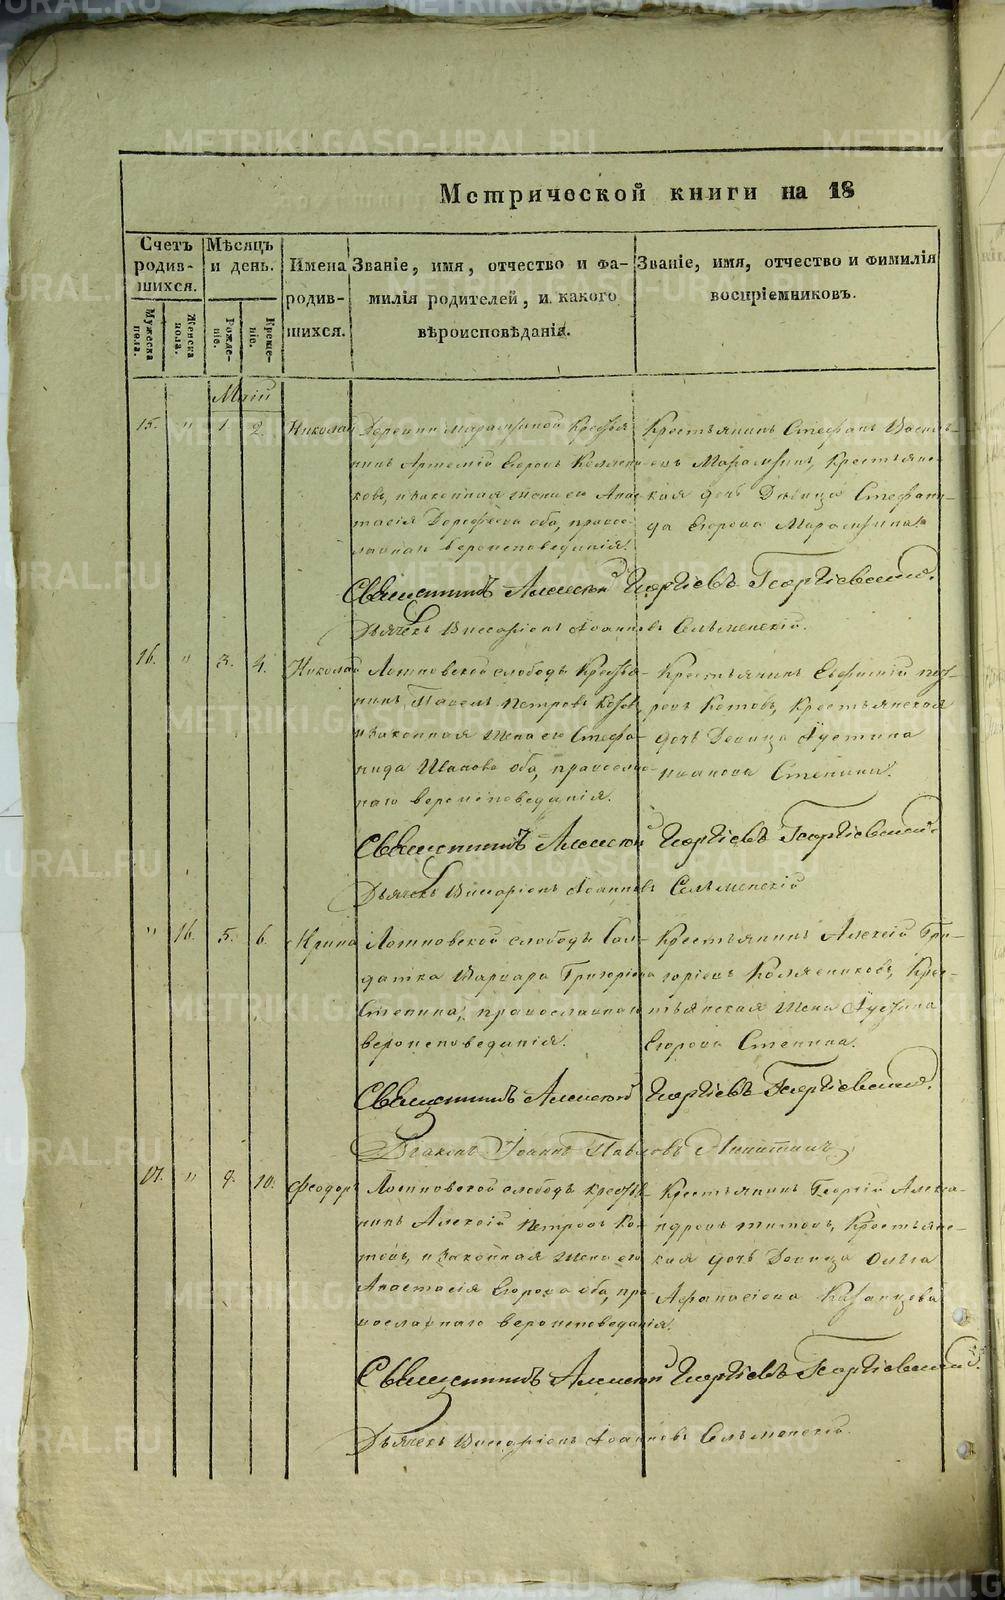 METRIKI.GASO-URAL.RU
Метрической книги на 18
Счетъ родив- шихся.
Мѣсяцъ и день.
Имена родив- шихся.
Званіе, имя, отчество и фа- милія родителей, и какого вѣроисповѣданія.
Званіе, имя, отчество и фимилія воспріемниковъ.
Мужеска пола.
Женска пола.
Рожде- ніе.
Креще- ніе.
Маій
15. " 1 2. Николай
Деревни Марамзиной Кресть
нинъ Артемій Егоровъ
ковъ, и законная жена его Анас
тасія оба, правос
лавнаго вероисповеданія.
Крестьянинъ Стефанъ Васил
евъ Марамзинъ, Крестьянс
кая дочь Девица Стефани
да Егорова Марамзина.
Священникъ Алексей Георгіевъ Георгіевскій.
Дьячекъ Виссаріонъ Іоанновъ Селѣменскій.
16. " 3. 4. Николай
слободы Кресть
нинъ Павелъ Петровъ
и законная жена его Стефа-
нида Иванова оба, православ
наго вероисповеданія.
Крестьянинъ Евфимій
ровъ Котовъ, Крестьянская
дочь Девица Іустина
Иванова Степина.
Священникъ Алексей Георгіевъ Георгіевскій.
Дьячекъ Виссаріонъ Іоанновъ Селѣменскій
" 16. 5. 6. Ирина
слободы Сол-
датка Варвара Григоріева
Степина, православнаго
вероисповеданія.
Крестьянинъ Алексій Гри-
горіевъ Крес-
тьянская жена Іустина
Егорова Степина.
Священникъ Алексей Георгіевъ Георгіевскій.
Діаконъ Іоаннъ Павловъ Никитинъ
17. " 9. 10. Феодоръ
слободы кресть
нинъ Алексій Петровъ Ко-
товъ, и законная жена его
Анастасія Егорова оба, пра
вославнаго вероисповеданія.
Крестьянинъ Георгій Алекса-
ндровъ Титовъ, Крестьянс-
кая дочь Девица Ольга
Афанасіева Казанцова
Священникъ Алексей Георгіевъ Георгіевскій.
Дьячекъ Виссаріонъ Іоанновъ Селѣменскій.